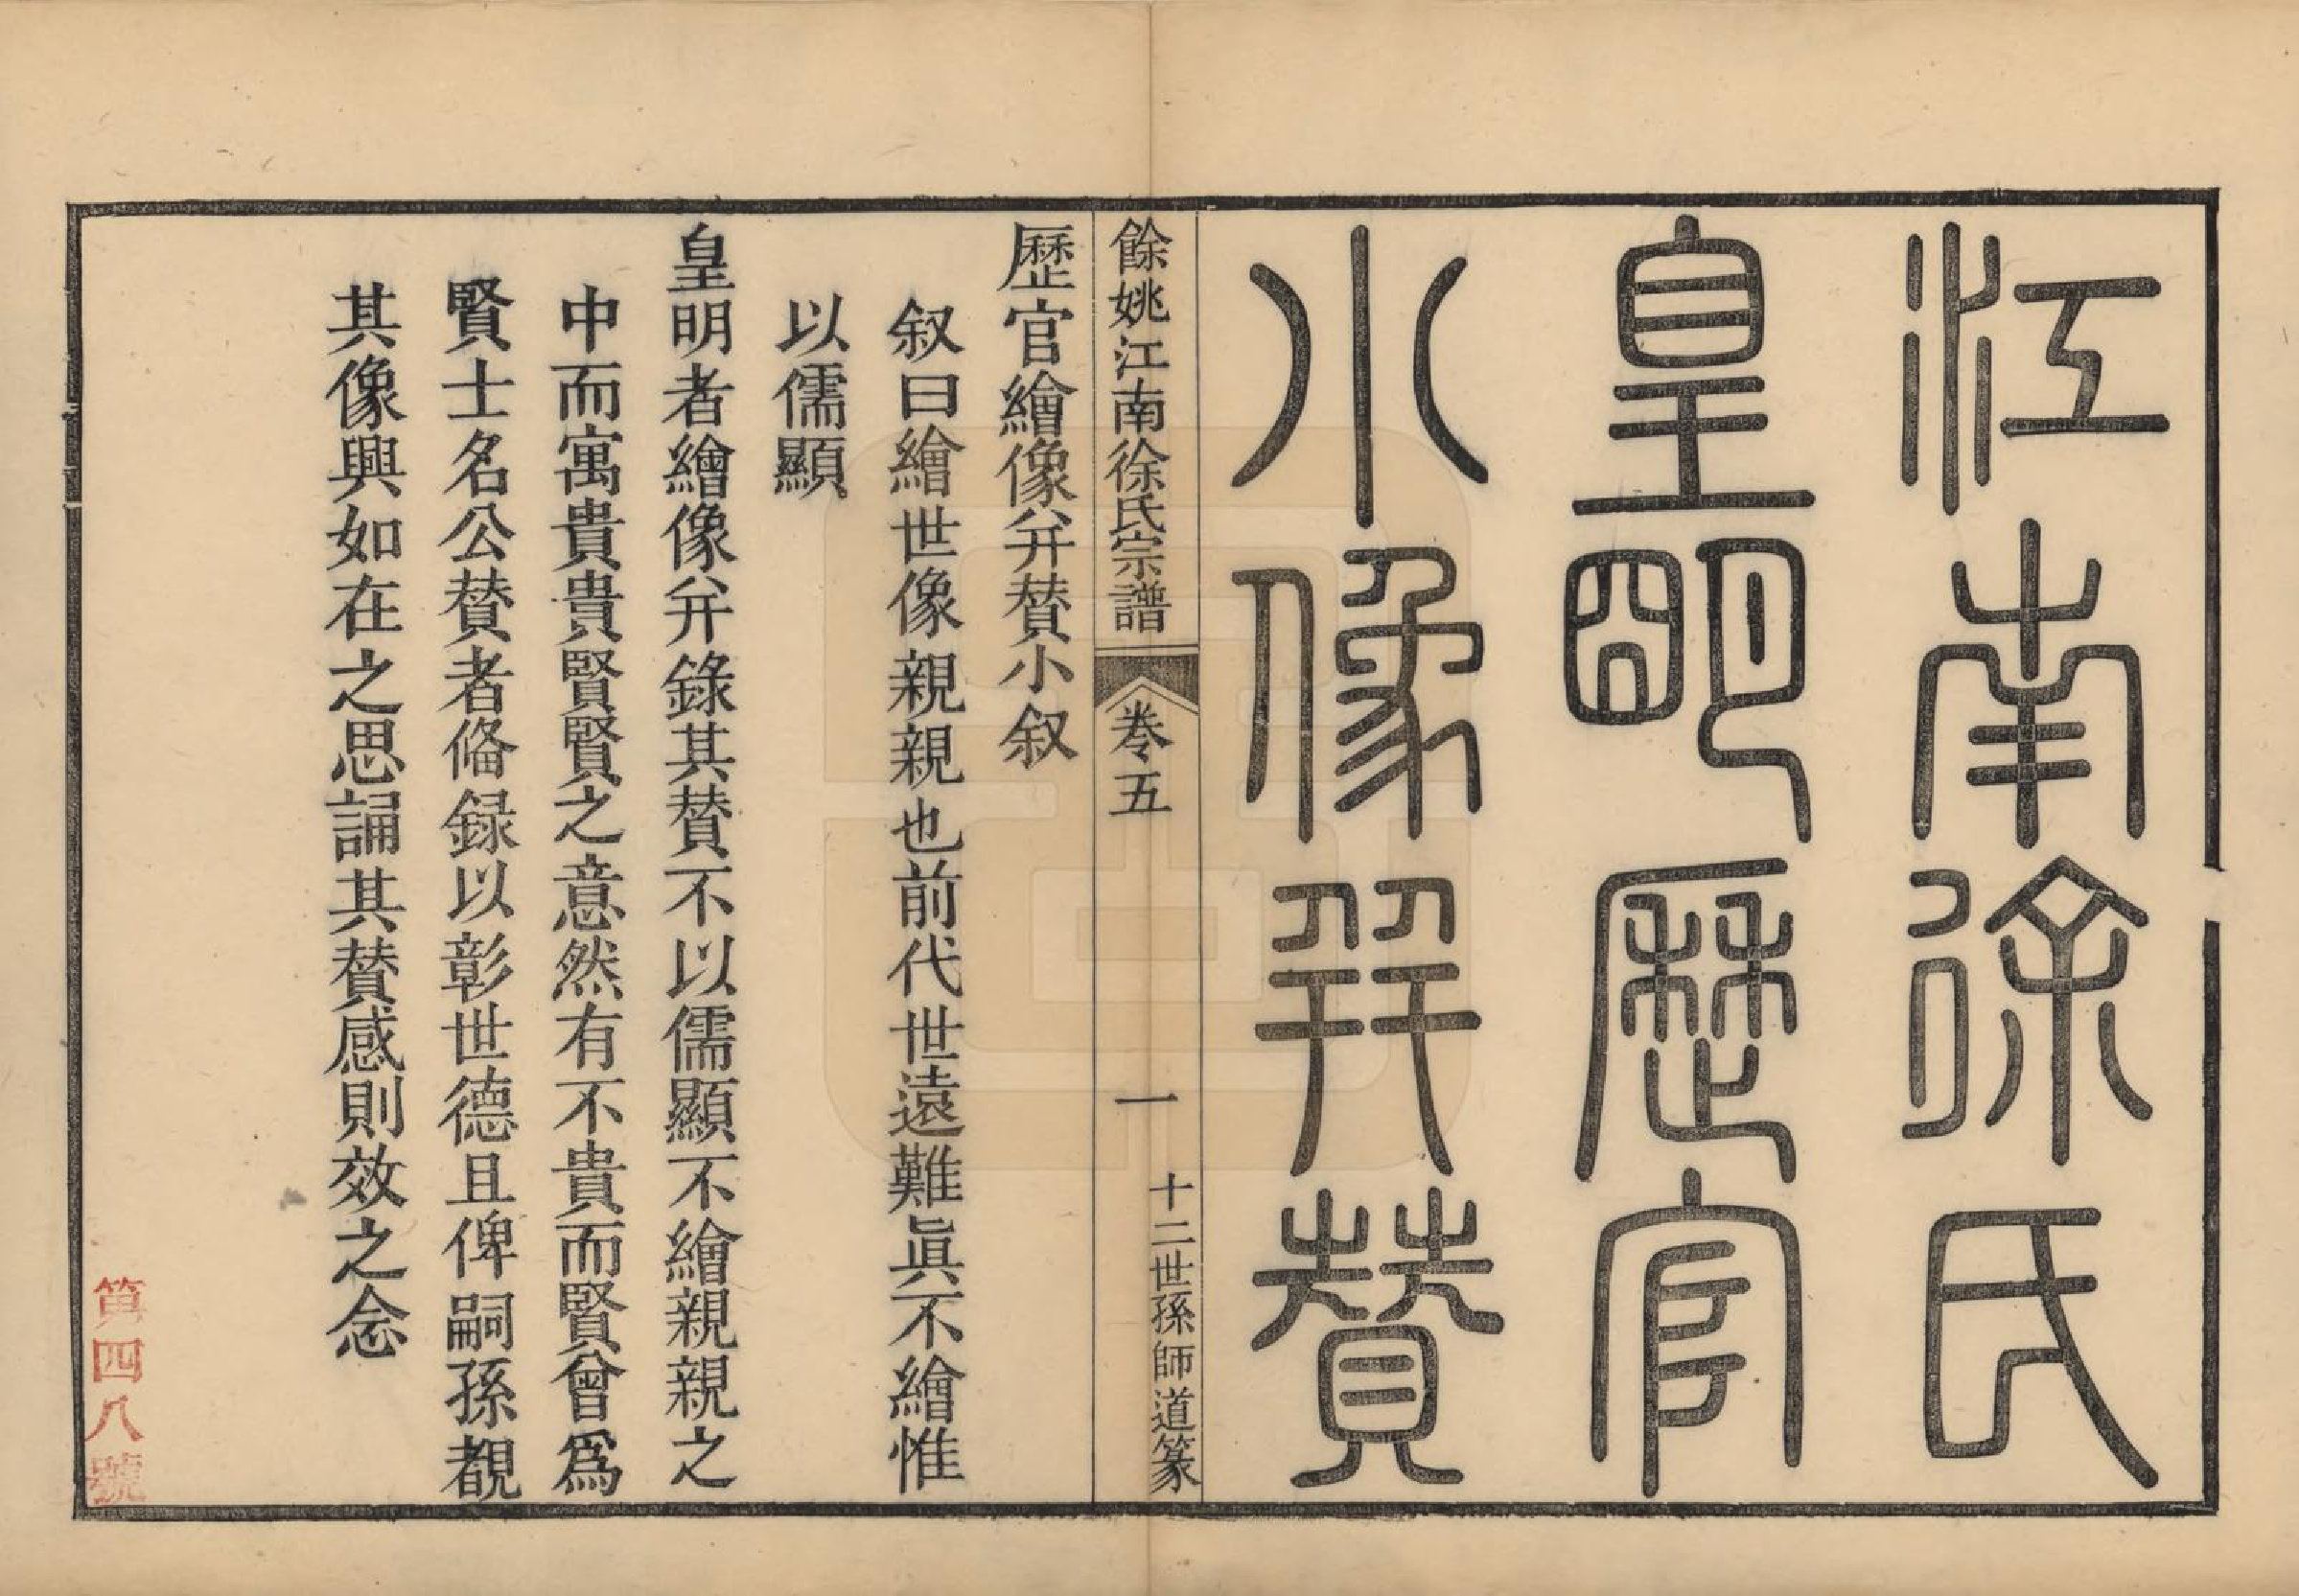 江南徐氏
皇明歷官
小像幷贊
十二世孫師道篆
餘姚江南徐氏宗譜
卷五
一
歷官繪像幷贊小叙
叙曰繪世像親親也前代世遠難眞不繪惟
以儒顯
皇明者繪像幷錄其贊不以儒顯不繪親親之
中而寓貴貴賢賢之意然有不貴而賢曾爲
賢士名公贊者俻録以彰世德且俾嗣孫覩
其像興如在之思誦其贊感則效之念
第四八號